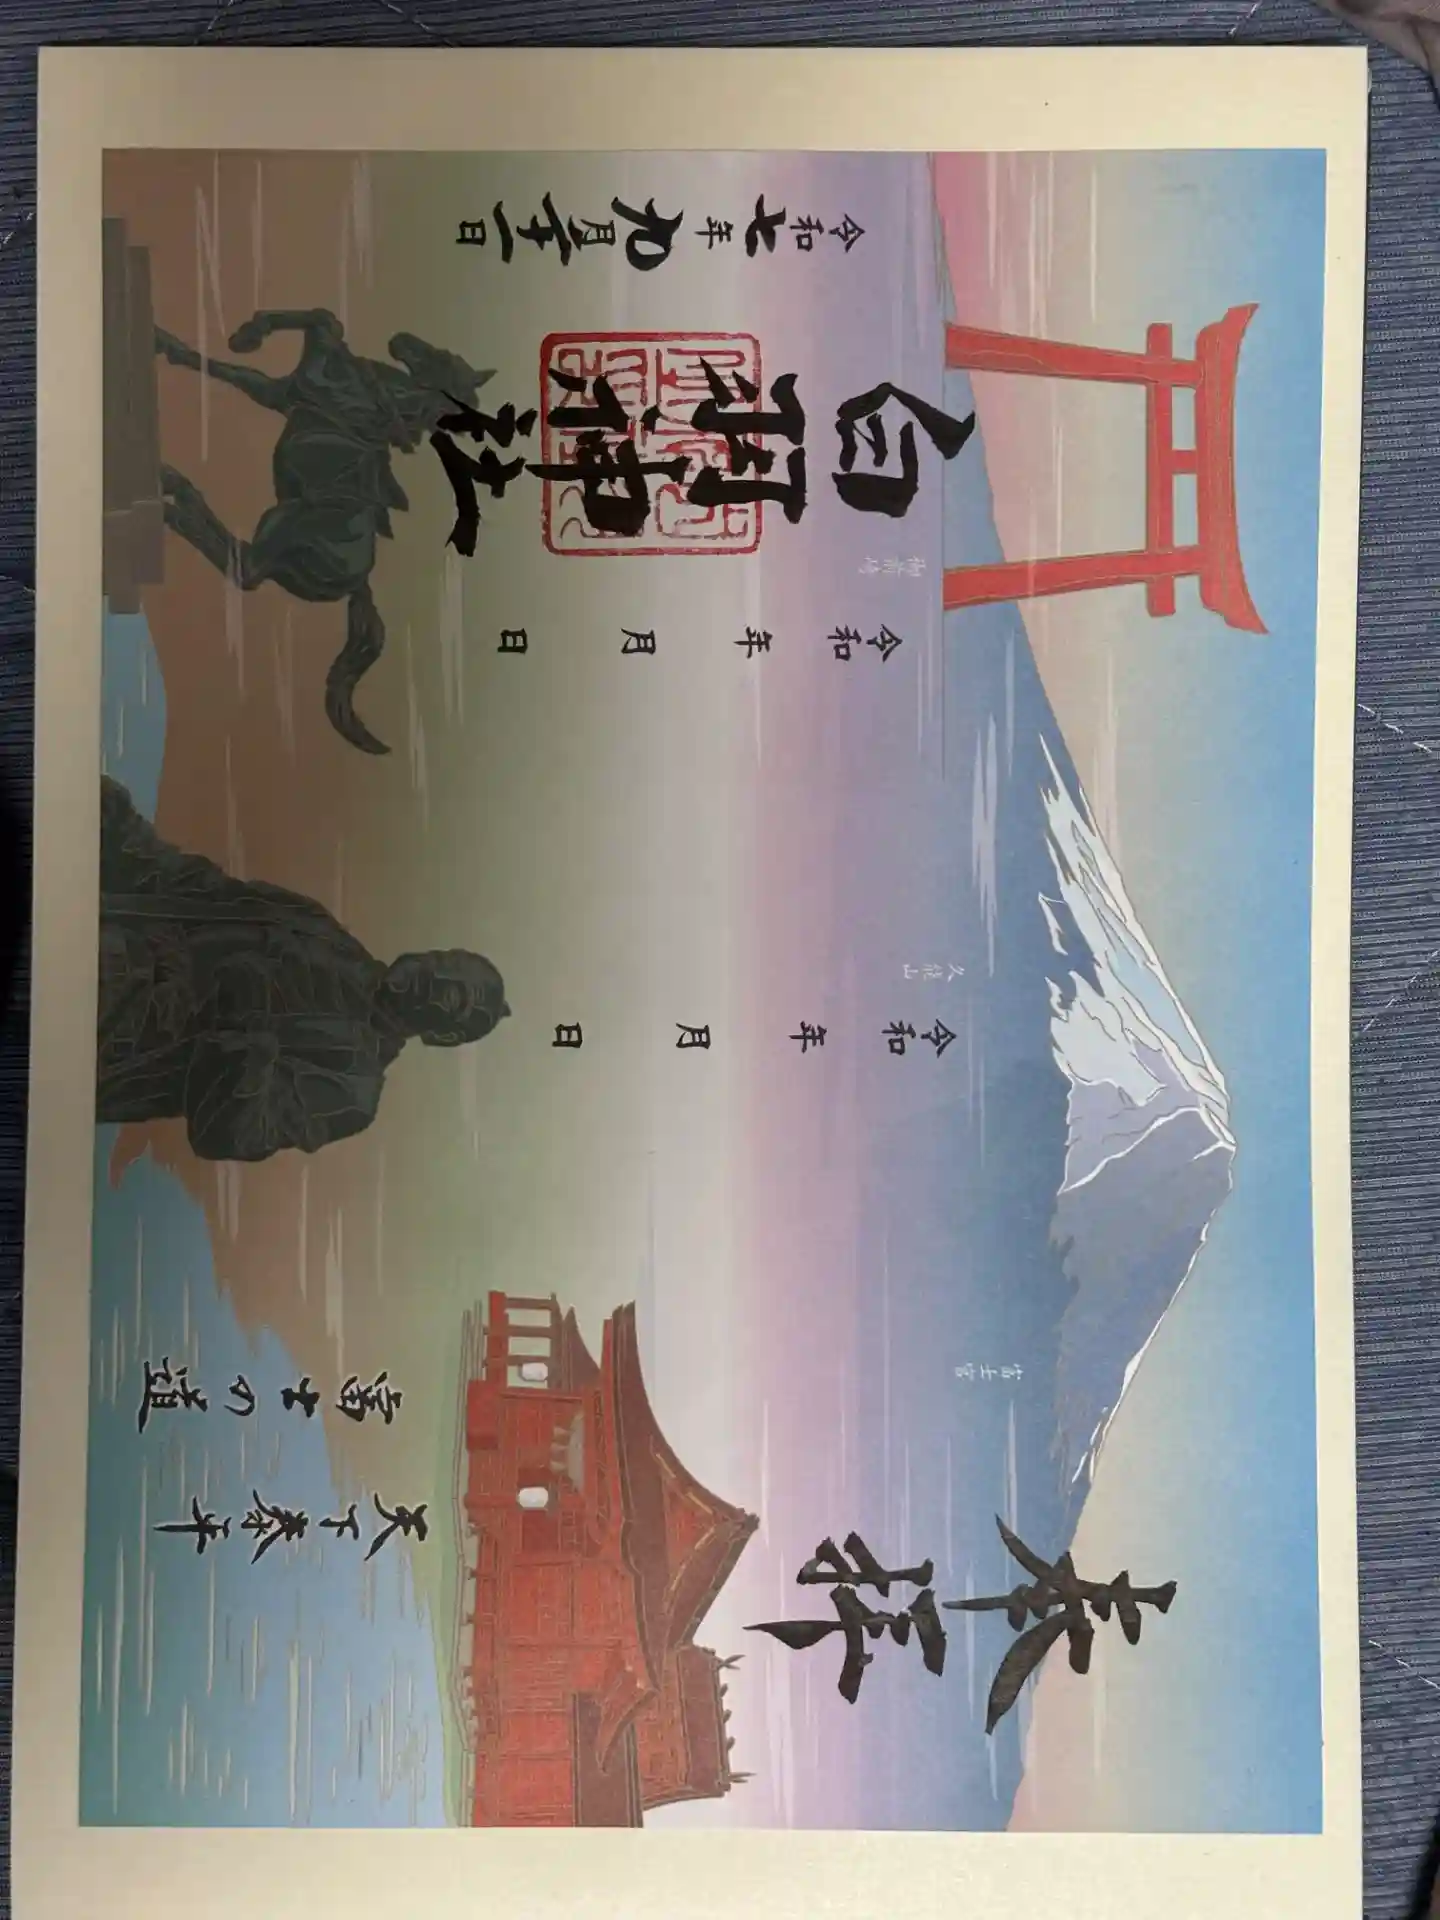 奉拝
天下泰平
富士の道
富士宮
久能山
令和　年　月　日
御前崎
令和　年　月　日
白羽神社
令和七年九月二十一日